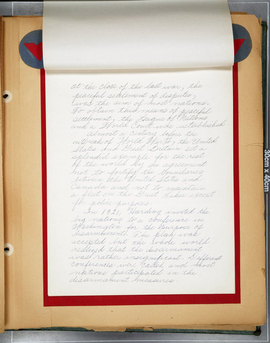 At the close of the last war, the
peaceful settlement of disputes
was the aim of most nations.
To obtain this means of peaceful
settlement, the League of Nations
and a World Court was established.
Almost a century before the
outbreak of World War, the United
States and Great Britain set a
splendid example for the rest
of the world by an agreement
not to fortify the boundary
between the United States and
Canada and not to maintain
a fleet on the Great Lakes except
for police purpose.
In 1921, Harding invited the
big nations to a conference in
Washington for the purpose of
disarmament. The plan was
accepted but the whole world
realized that the disarmament
was rather insignificant. Different
conferences were called and about
nations participated in the
disarmament
35cm x 40cm